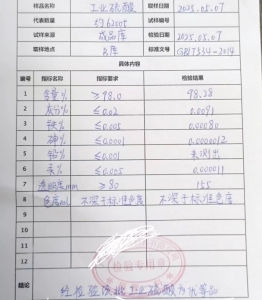 样品名称 工业硫酸 取样日期 2025.05.07
代表数量 约6200t 试样编号
试样来源 成品库 检验日期 2025.05.07
取样地点 标准文号 GB/T534-2014
具体内容
编号 指标名称 指标要求 检验结果
1 含量% ≥98.0 98.28
2 灰分% ≤0.02 0.0091
3 铁% ≤0.005 0.00080
4 砷% ≤0.0001 0.0000012
5 铅% ≤0.001 未测出
6 汞% ≤0.001
7 透明度mm ≥80 155
8 色度mL 不深于标准色度 不深于标准色度
9
10
11
12
检验专用章
结论 经检验该批工业硫酸为优等品